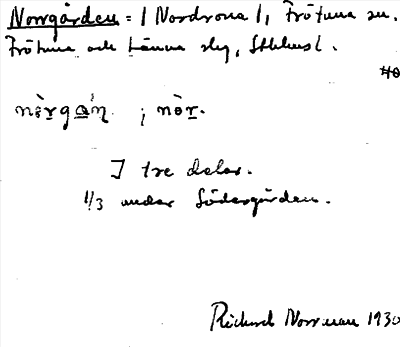 Norrgården = / Nordrona /, Frötuna sn.
Frötuna och Länna slg, Sthlms l.
nø̀rgɑ́ṇ ; nø̀r.
I tre delar.
1/3 under Södergården.
Richard Norrman 1930